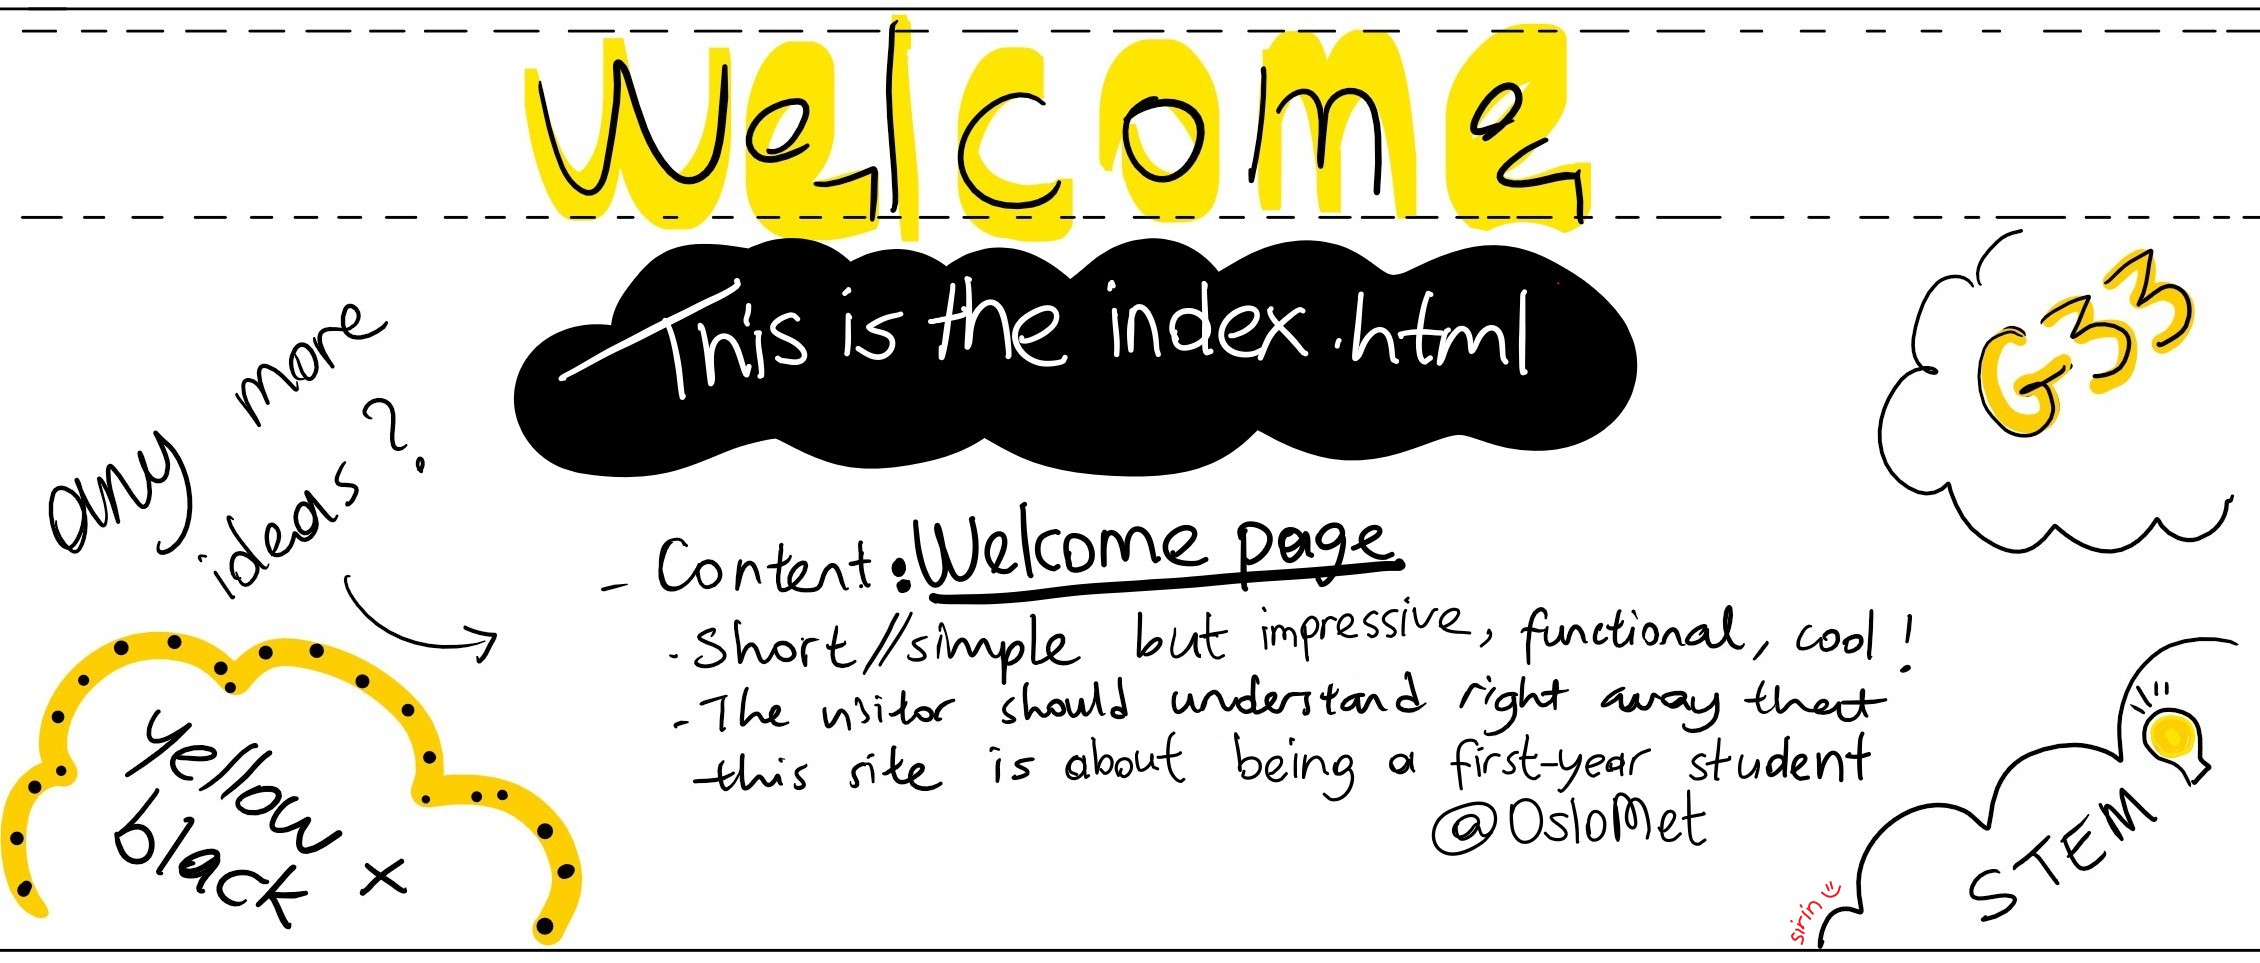 Welcome
This is the index.html
G33
any more
ideas?
- Content: Welcome page
- Short//simple but impressive, functional, cool!
- The visitor should understand right away that
this site is about being a first-year student
@OsloMet
yellow x
black
STEM
sirin